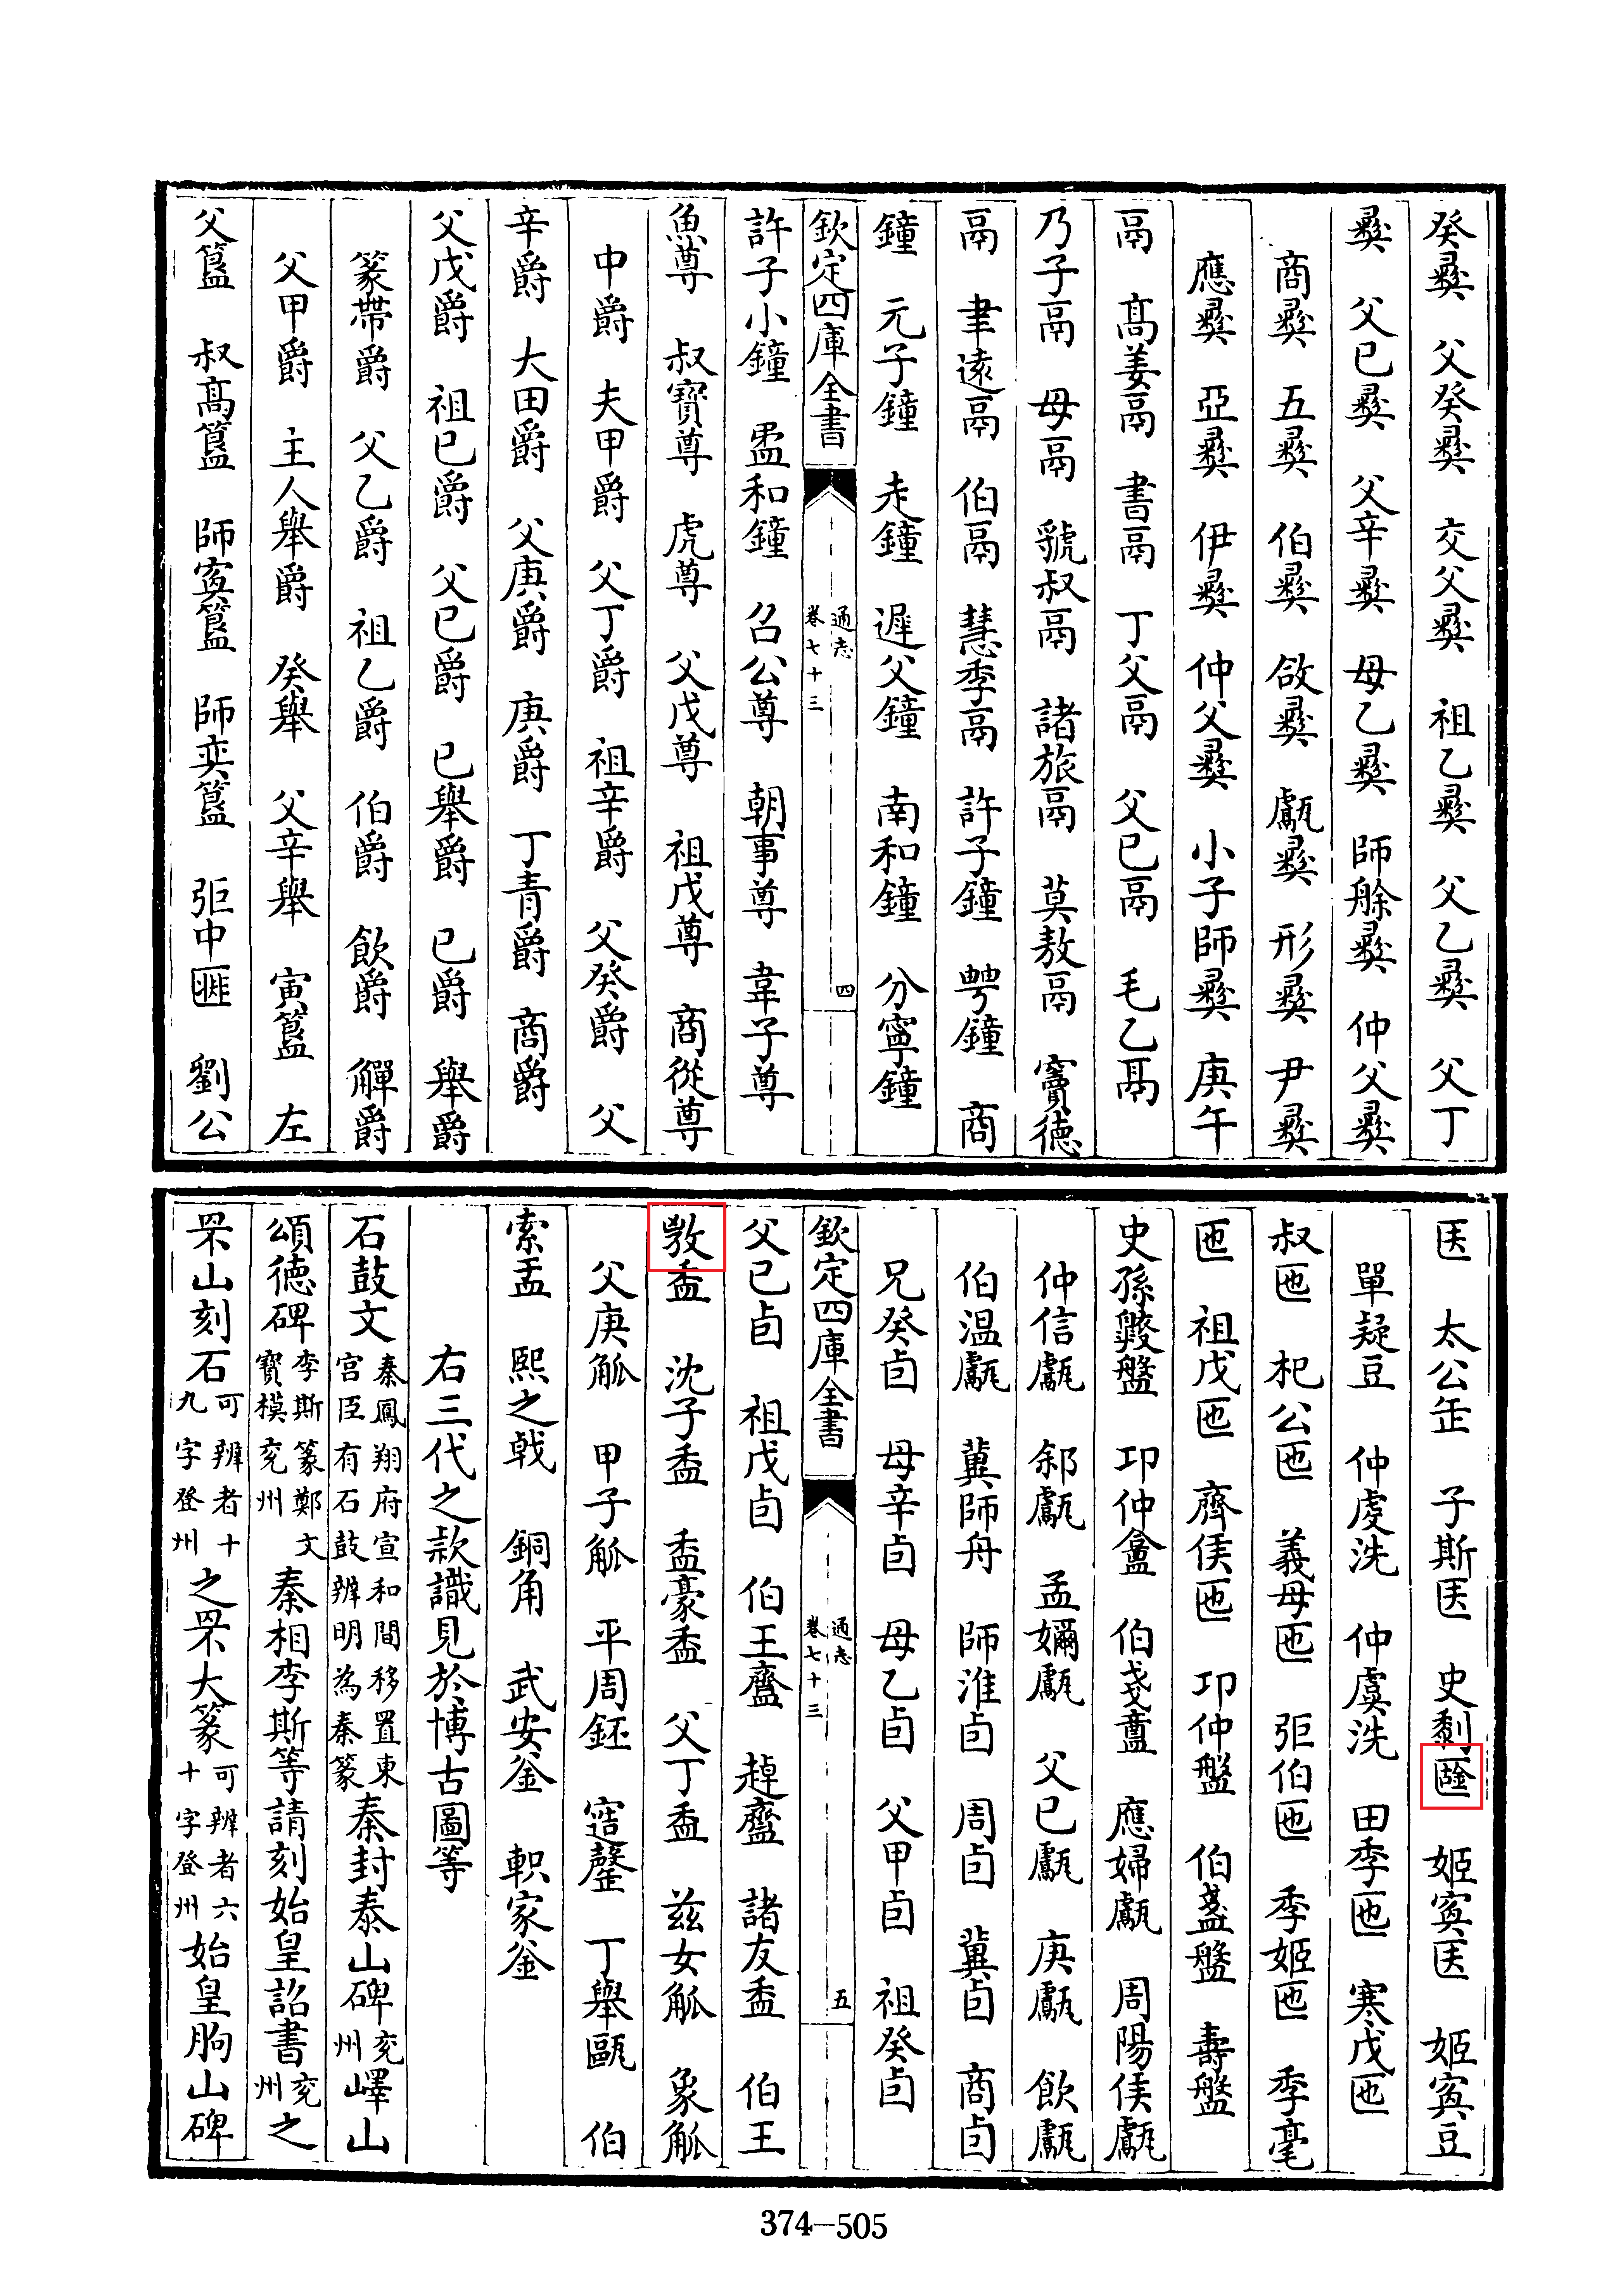 癸彝　父癸彝　交父彝　祖乙彝　父乙彝　父丁
彝　父已彝　父辛彝　母乙彝　師艅彝　仲父彝
商彝　五彝　伯彝　㪉彝　甗彝　形彝　尹彝
應彝　亞彝　伊彝　仲父彝　小子師彝　庚午
鬲　髙姜鬲　書鬲　丁父鬲　父已鬲　毛乙鬲
乃子鬲　母鬲　虢叔鬲　諸旅鬲　莫敖鬲　竇徳
鬲　聿遠鬲　伯鬲　慧季鬲　許子鐘　鐘　商
鐘　元子鐘　走鐘　遲父鐘　南和鐘　分寧鐘
欽定四庫全書　通志　卷七十三　四
許子小鐘　盄和鐘　召公尊　朝事尊　韋子尊
魚尊　叔寶尊　虎尊　父戊尊　祖戊尊　商從尊
中爵　夫甲爵　父丁爵　祖辛爵　父癸爵　父
辛爵　大田爵　父庚爵　庚爵　丁青爵　商爵
父戊爵　祖已爵　父已爵　已舉爵　已爵　舉爵
篆帶爵　父乙爵　祖乙爵　伯爵　飲爵　觶爵
父甲爵　主人舉爵　癸舉　父辛舉　寅簋　左
父簋　叔髙簋　師寏簋　師奕簋　弡中匪　劉公
匡　太公缶　子斯匡　史剰　姬寏匡　姬寏豆
單疑豆　仲虔洗　仲虞洗　田季匜　寒戊匜
叔匜　杞公匜　義母匜　弡伯匜　季姬匜　季亳
匜　祖戊匜　齊侯匜　卭仲盤　伯盞盤　壽盤
史孫盤　卭仲盦　伯戔　應婦甗　周陽侯甗
仲信甗　郤甗　孟嬭甗　父已甗　庚甗　飲甗
伯温甗　冀師舟　師淮卣　周卣　冀卣　商卣
兄癸卣　母辛卣　母乙卣　父甲卣　祖癸卣
欽定四庫全書　通志　卷七十三　五
父已卣　祖戊卣　伯王盦　趠盦　諸友盉　伯王
盉　沈子盉　盉豪盉　父丁盉　兹女觚　象觚
父庚觚　甲子觚　平周鉟　窖　丁舉甌　伯
索盂　熙之戟　銅角　武安釜　軹家釜
右三代之款識見於博古圖等
石鼓文秦鳳翔府宣和間移置東宫臣有石鼓辨明為秦篆　秦封泰山碑兖州　嶧山
頌徳碑李斯篆鄭文寶模兖州　秦相李斯等請刻始皇詔書兖州　之
罘山刻石可辨者十九字登州　之罘大篆可辨者六十字登州　始皇朐山碑
374—505